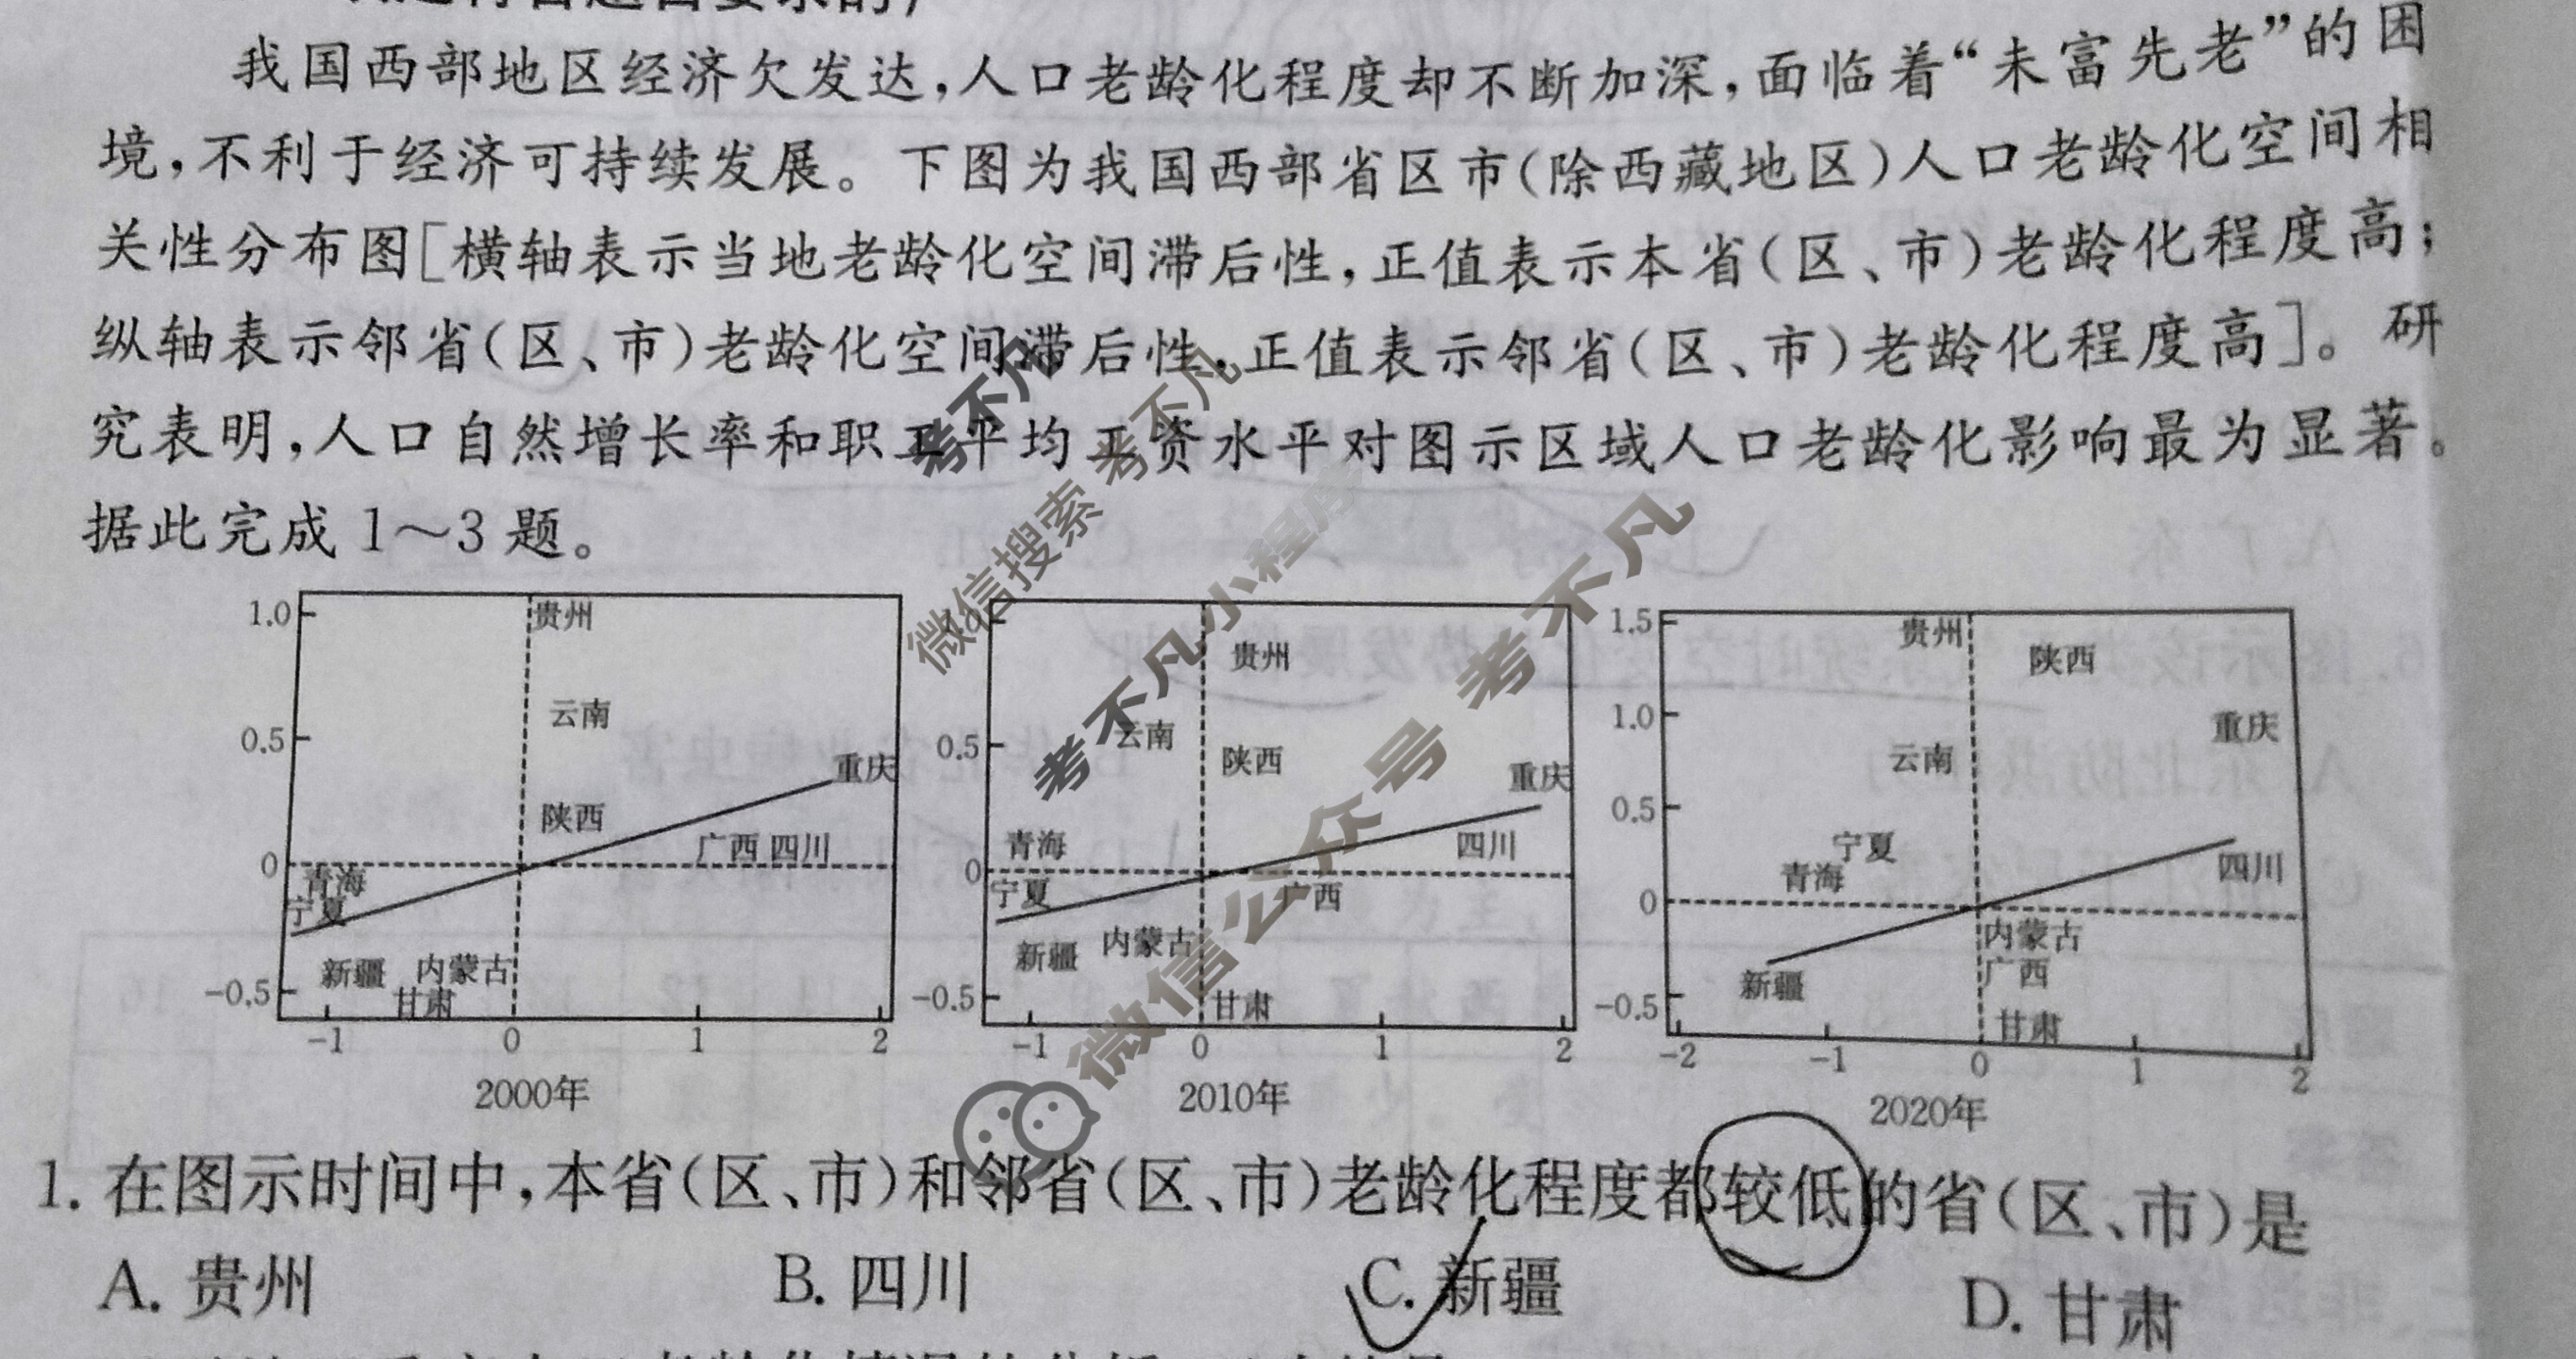 我国西部地区经济欠发达,人口老龄化程度却不断加深,面临着“未富先老”的困
境,不利于经济可持续发展。下图为我国西部省区市(除西藏地区)人口老龄化空间相
关性分布图[横轴表示当地老龄化空间滞后性,正值表示本省(区、市)老龄化程度高;
纵轴表示邻省(区、市)老龄化空间滞后性,正值表示邻省(区、市)老龄化程度高]。研
究表明,人口自然增长率和职工平均工资水平对图示区域人口老龄化影响最为显著。
据此完成1~3题。
1.0
0.5
0
-0.5
贵州
云南
重庆
陕西
广西 四川
青海
宁夏
新疆 内蒙古
甘肃
-1 0 1 2
2000年
1.0
0.5
0
-0.5
贵州
云南
陕西
重庆
青海
四川
宁夏
广西
新疆 内蒙古
甘肃
-1 0 1 2
2010年
1.5
1.0
0.5
0
-0.5
贵州
陕西
重庆
云南
宁夏
青海
四川
内蒙古
广西
新疆
甘肃
-2 -1 0 1 2
2020年
考不凡
微信搜索 考不凡
考不凡小程序
微信公众号 考不凡
1. 在图示时间中,本省(区、市)和邻省(区、市)老龄化程度都较低的省(区、市)是
A. 贵州 B. 四川 C. 新疆 D. 甘肃